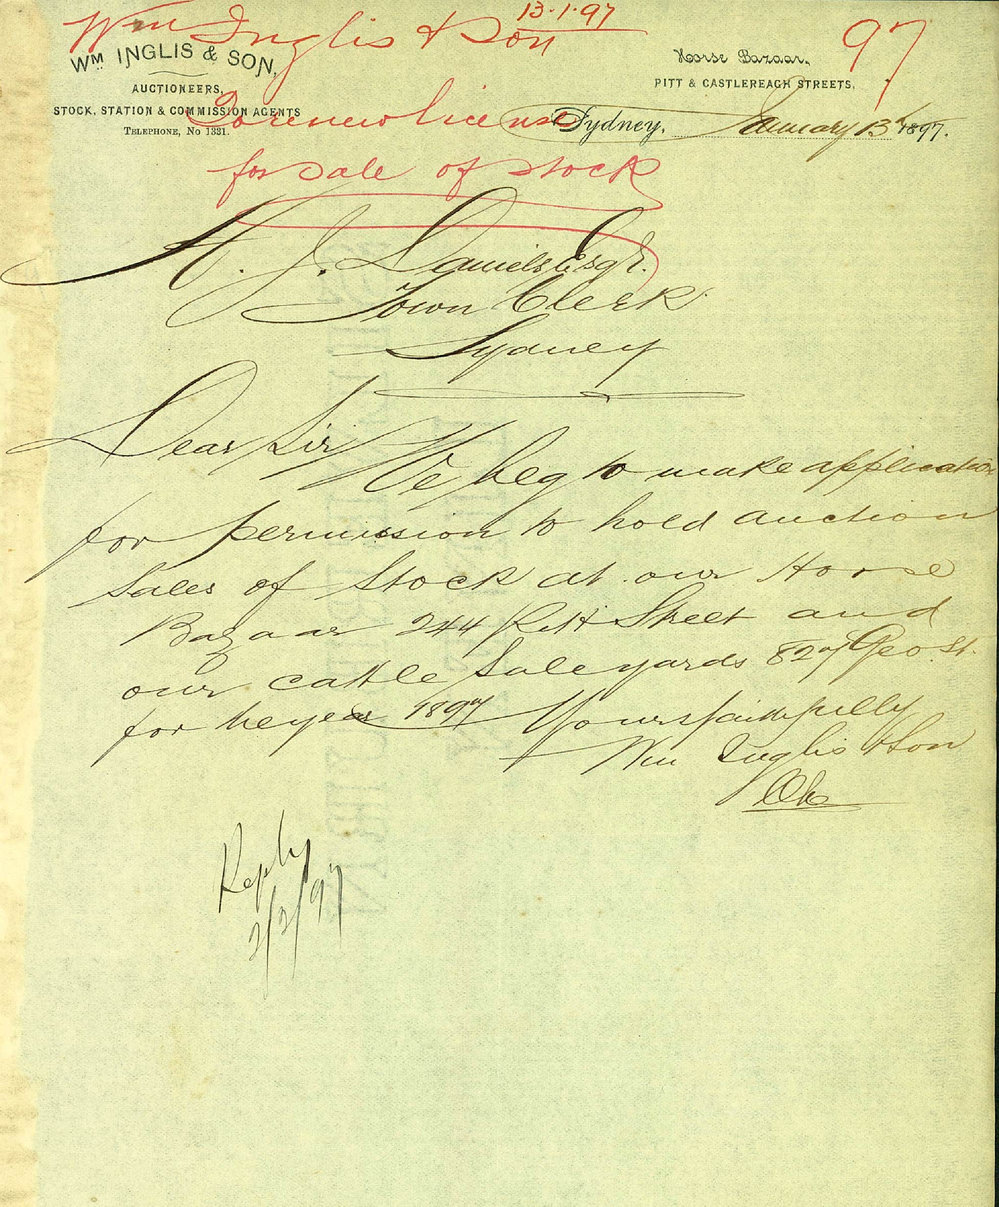 13.1.97
Wm Inglis & Son
97
Wm INGLIS & SON,
AUCTIONEERS,
STOCK, STATION & COMMISSION AGENTS
TELEPHONE, No 1331.
Horse Bazaar,
PITT & CASTLEREAGH STREETS,
Sydney, January 13th 1897.
To renew license
for sale of stock
H. J. Daniels Esqr.
Town Clerk
Sydney
Dear Sir,
We beg to make application
for permission to hold auction
sales of Stock at our Horse
Bazaar 244 Pitt Street and
our cattle Saleyards 827 Geo. St.
for the year 1897
Yours faithfully
Wm Inglis & Son
Reply
2/2/97